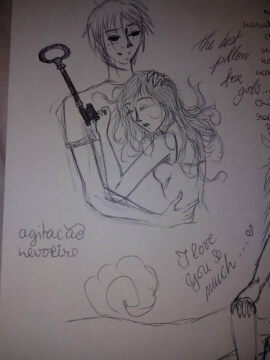 the best
pillow
for
girls...
agitação
nevoeiro
I love
you
much...